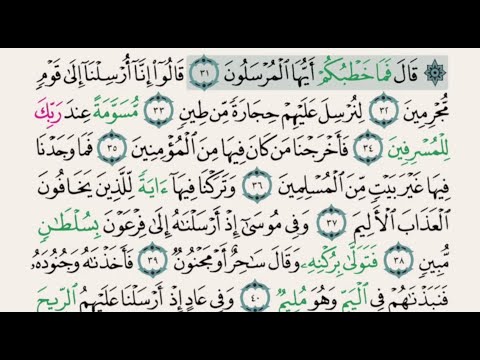 ۞ قَالَ فَمَا خَطْبُكُمْ أَيُّهَا ٱلْمُرْسَلُونَ ٣١ قَالُوٓا۟ إِنَّآ أُرْسِلْنَآ إِلَىٰ قَوْمٍ
مُّجْرِمِينَ ٣٢ لِنُرْسِلَ عَلَيْهِمْ حِجَارَةً مِّن طِينٍ ٣٣ مُّسَوَّمَةً عِندَ رَبِّكَ
لِلْمُسْرِفِينَ ٣٤ فَأَخْرَجْنَا مَن كَانَ فِيهَا مِنَ ٱلْمُؤْمِنِينَ ٣٥ فَمَا وَجَدْنَا
فِيهَا غَيْرَ بَيْتٍ مِّنَ ٱلْمُسْلِمِينَ ٣٦ وَتَرَكْنَا فِيهَآ ءَايَةً لِّلَّذِينَ يَخَافُونَ
ٱلْعَذَابَ ٱلْأَلِيمَ ٣٧ وَفِى مُوسَىٰٓ إِذْ أَرْسَلْنَٰهُ إِلَىٰ فِرْعَوْنَ بِسُلْطَٰنٍ
مُّبِينٍ ٣٨ فَتَوَلَّىٰ بِرُكْنِهِۦ وَقَالَ سَٰحِرٌ أَوْ مَجْنُونٌ ٣٩ فَأَخَذْنَٰهُ وَجُنُودَهُۥ
فَنَبَذْنَٰهُمْ فِى ٱلْيَمِّ وَهُوَ مُلِيمٌ ٤٠ وَفِى عَادٍ إِذْ أَرْسَلْنَا عَلَيْهِمُ ٱلرِّيحَ